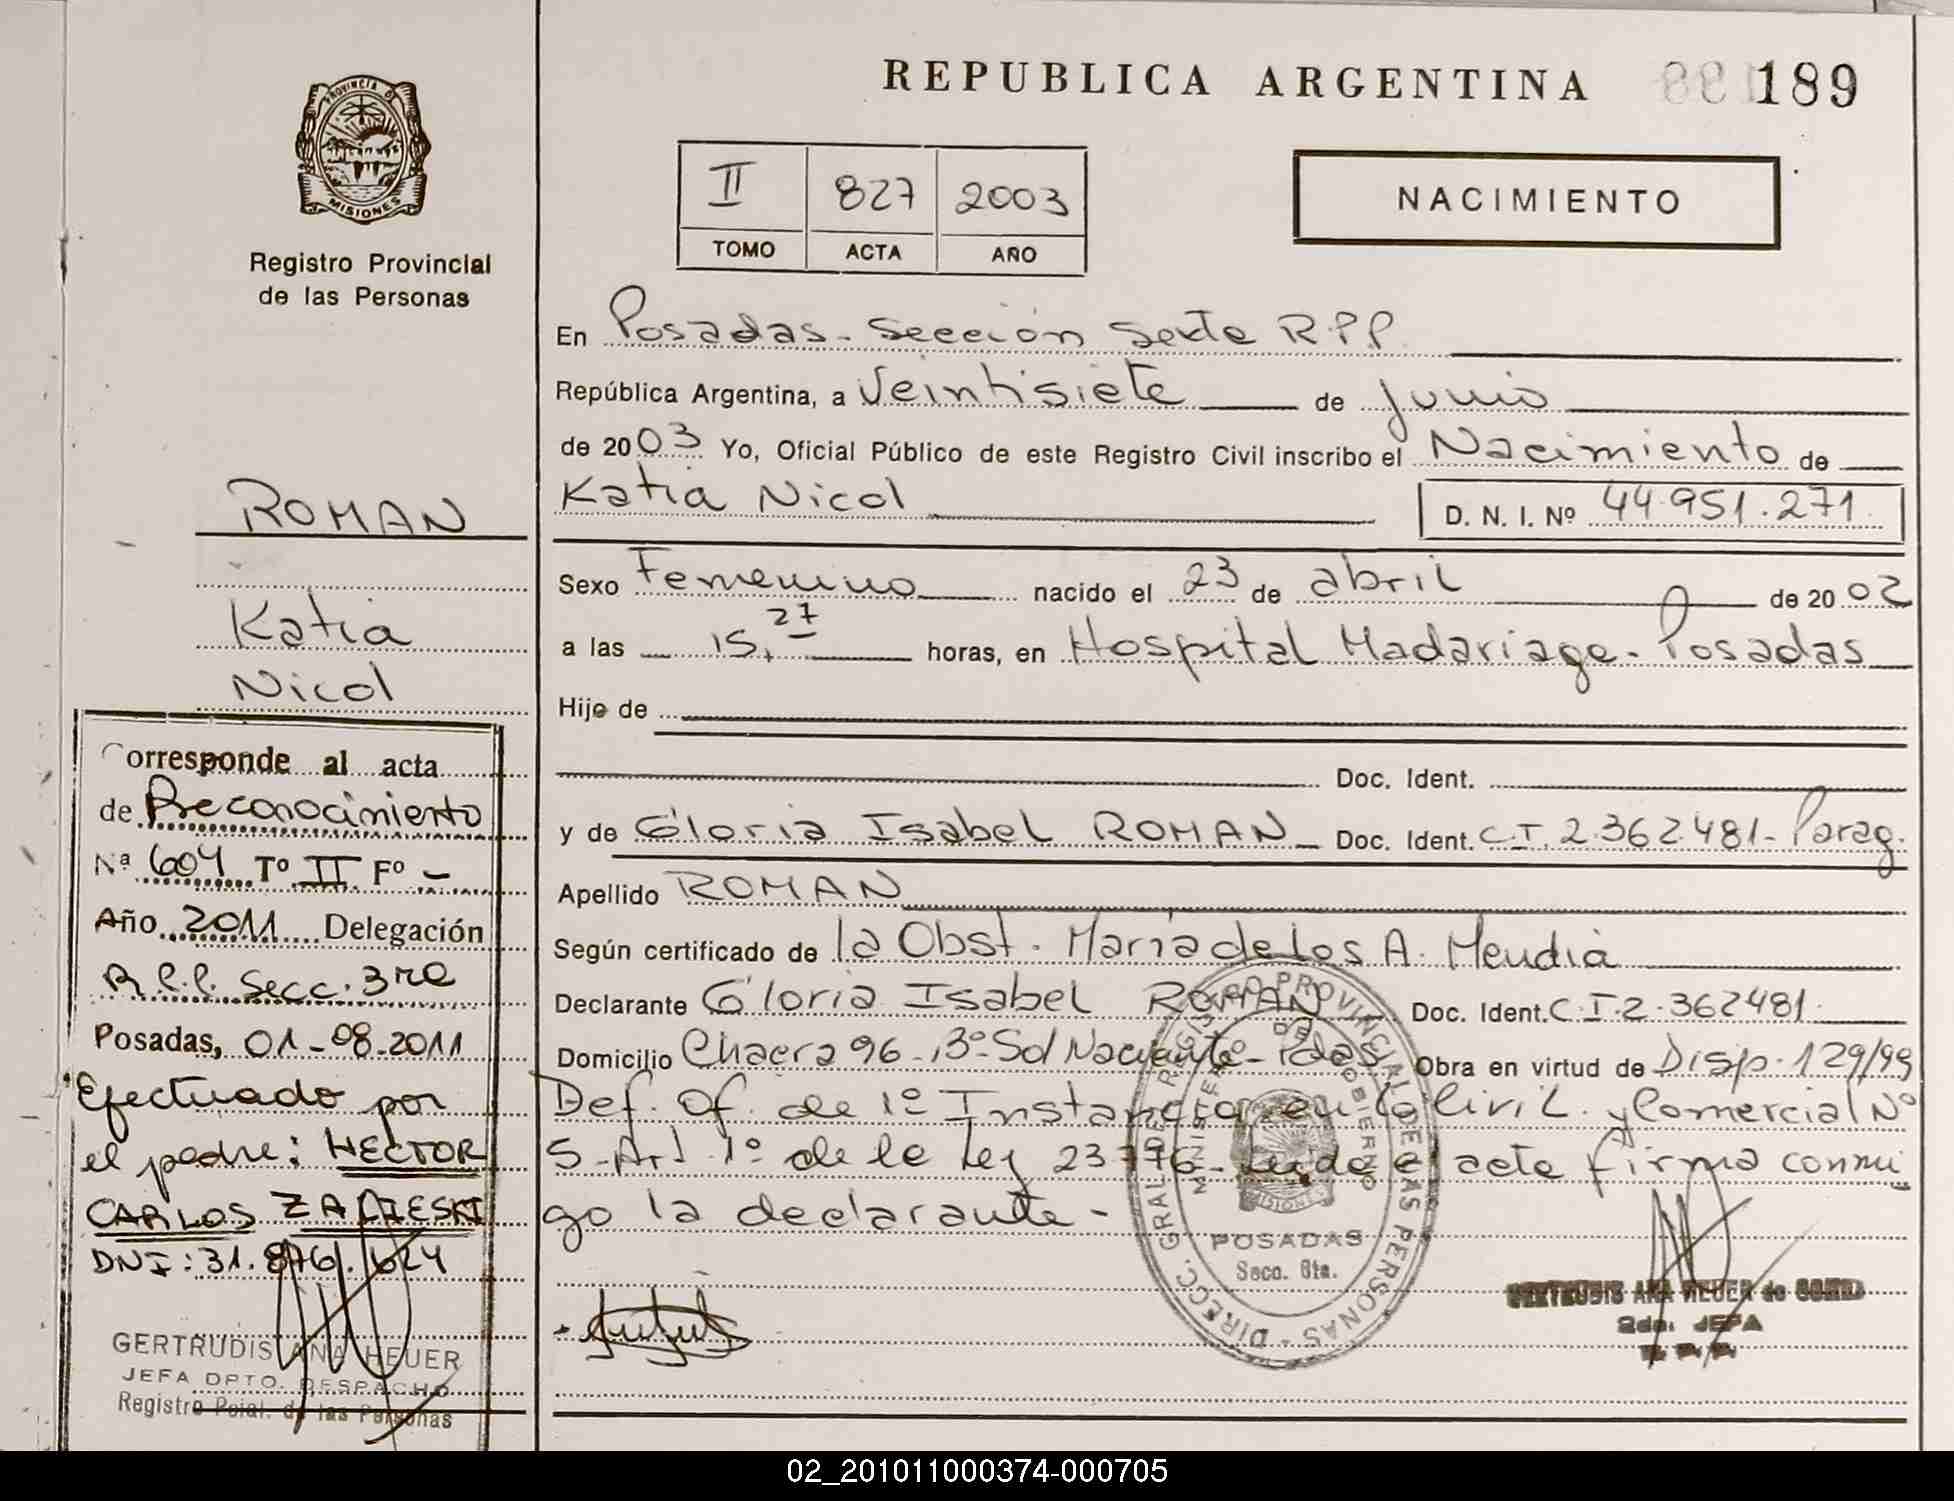 REPUBLICA ARGENTINA 189
PROVINCIA DE
MISIONES
Registro Provincial
de las Personas
II 827 2003
TOMO ACTA AÑO
NACIMIENTO
En Posadas - Sección Sexta R.P.P.
República Argentina, a Veintisiete de Junio
de 2003 Yo, Oficial Público de este Registro Civil inscribo el Nacimiento de
Katia Nicol D. N. I. Nº 44.951.271
Sexo Femenino nacido el 23 de abril de 2002
a las 15,27 horas, en Hospital Madariaga - Posadas
Hijo de
Doc. Ident.
y de Gloria Isabel ROMAN Doc. Ident. C.I. 2.362.481 - Parag.
Apellido ROMAN
Según certificado de la Obst. María de los A. Mendia
Declarante Gloria Isabel ROMAN Doc. Ident. C.I. 2.362481
Domicilio Chacra 96 - Bº Sol Naciente - Pdas Obra en virtud de Disp. 129/99
Def. Of. de 1º Instancia en lo Civil y Comercial Nº
5 - Art 1º de la Ley 23776 - el acta firma conmi
go la declarante -
DIRECC. GRAL DEL REGISTRO PROVINCIAL DE LAS PERSONAS
MINISTERIO DE GOBIERNO
MISIONES
POSADAS
Secc. 6ta.
GERTRUDIS ANA HEUER de
2da. JEFA
R. P. P.
ROMAN
Katia
Nicol
Corresponde al acta
de Reconocimiento
Nª 604 Tº II Fº -
Año 2011 Delegación
R.P.P. Secc. 3ra
Posadas, 01-08-2011
Efectuado por
el padre: HECTOR
CARLOS
DNI: 31.876.624
GERTRUDIS ANA HEUER
JEFA DPTO. DESPACHO
Registro Pcial. de las Personas
02_201011000374-000705